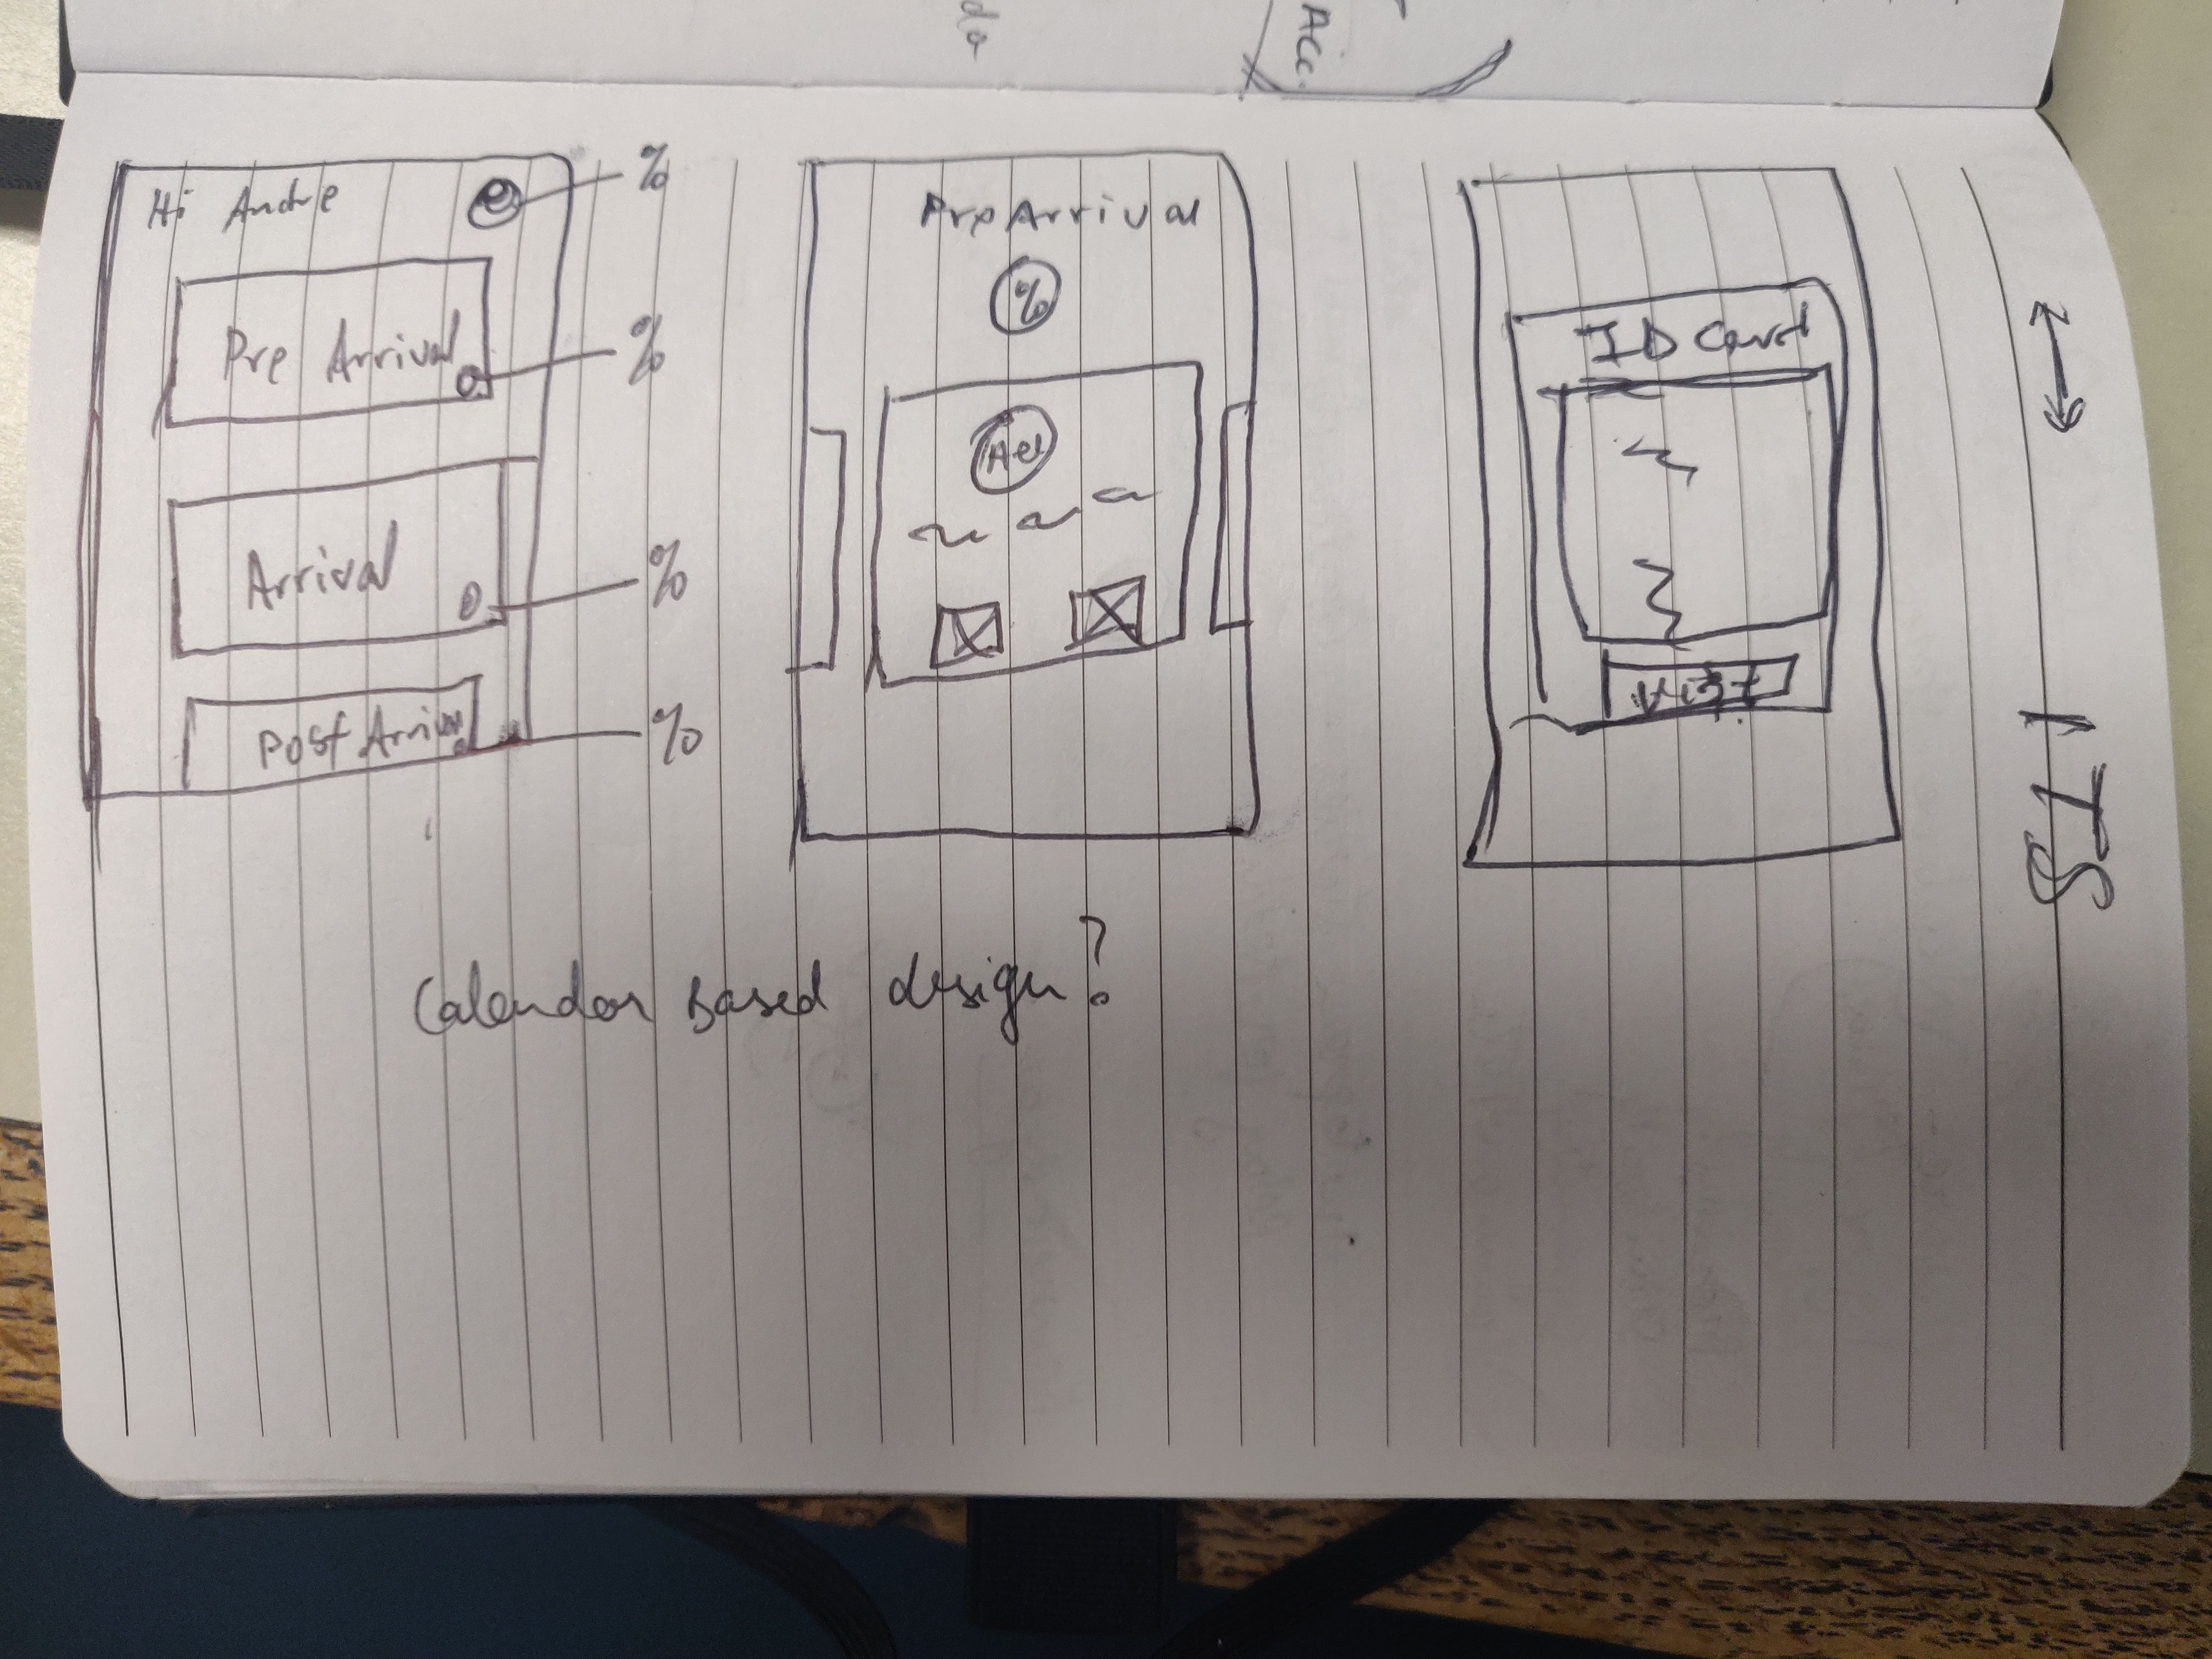 da
Acc.
Hi Andre
%
Pre Arrival
%
Arrival
%
Post Arrival
%
Pre Arrival
%
Acc
ID Card
Calendar Based design?